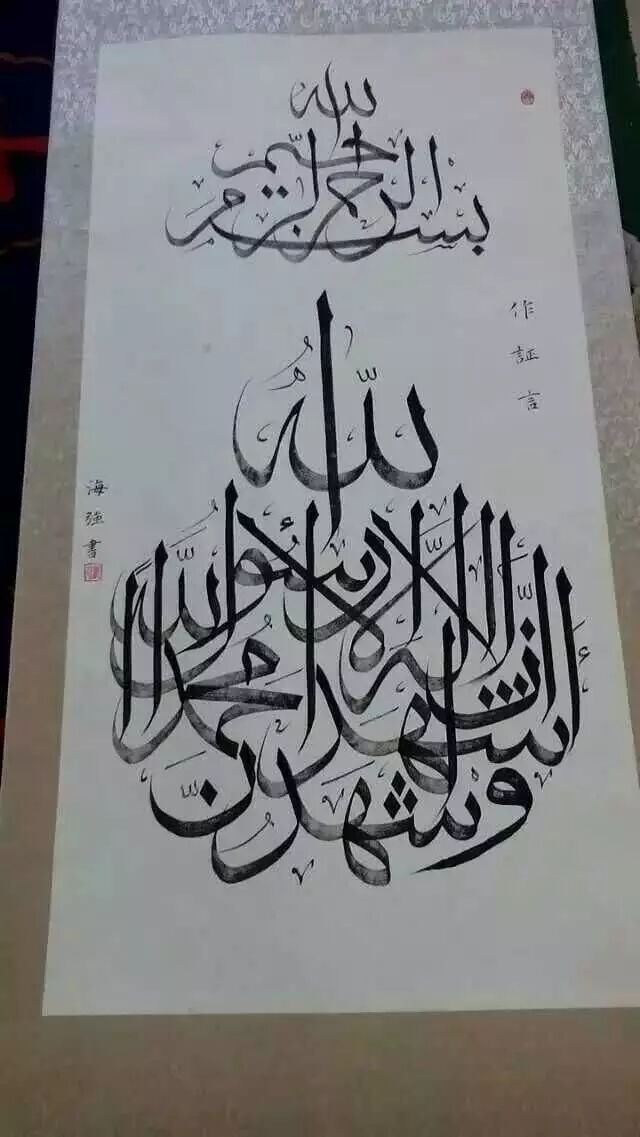 بسم الله الرحمن الرحيم
作証言
أشهد أن لا إله إلا الله
وأشهد أن محمدا رسول الله
海强書